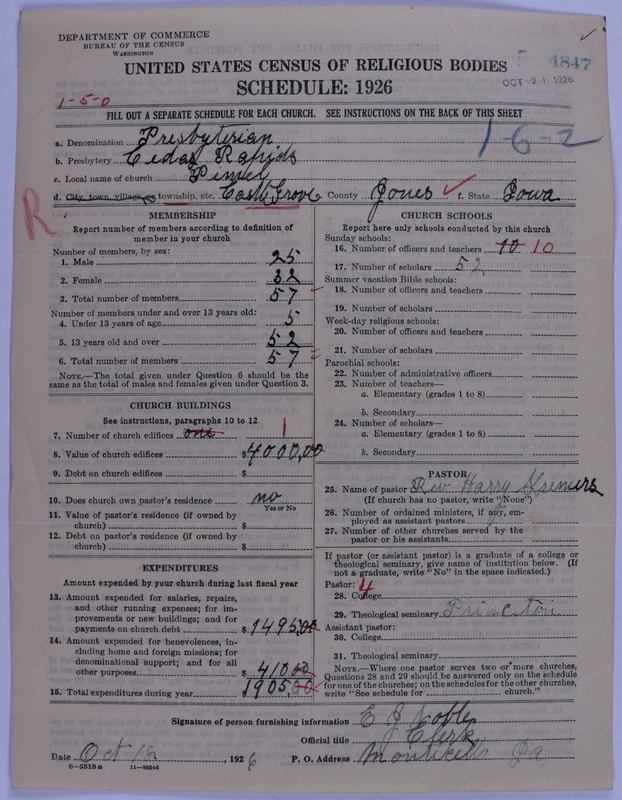 DEPARTMENT OF COMMERCE
BUREAU OF THE CENSUS
WASHINGTON
UNITED STATES CENSUS OF RELIGIOUS BODIES
SCHEDULE: 1926
4847
OCT 21 1926
1-5-0
FILL OUT A SEPARATE SCHEDULE FOR EACH CHURCH. SEE INSTRUCTIONS ON THE BACK OF THIS SHEET
1-6-2
a. Denomination Presbyterian
b. Presbytery Cedar Rapids
c. Local name of church
d. City, town, village, or township, etc. Castle Grove County Jones f. State Iowa
R
MEMBERSHIP
Report number of members according to definition of
member in your church
Number of members, by sex:
1. Male 25
2. Female 32
3. Total number of members 57
Number of members under and over 13 years old:
4. Under 13 years of age 5
5. 13 years old and over 52
6. Total number of members 57
NOTE.—The total given under Question 6 should be
the same as the total of males and females given under Question 3.
CHURCH BUILDINGS
See instructions, paragraphs 10 to 12
7. Number of church edifices one 1
8. Value of church edifices $4000,00
9. Debt on church edifices $
10. Does church own pastor's residence no
Yes or No
11. Value of pastor's residence (if owned by
church) $
12. Debt on pastor's residence (if owned by
church) $
EXPENDITURES
Amount expended by your church during last fiscal year
13. Amount expended for salaries, repairs,
and other running expenses; for im-
provements or new buildings; and for
payments on church debt $1495,00
14. Amount expended for benevolences, in-
cluding home and foreign missions; for
denominational support; and for all
other purposes $410 00
15. Total expenditures during year 1905,00
CHURCH SCHOOLS
Report here only schools conducted by this church
Sunday schools:
16. Number of officers and teachers 10 10
17. Number of scholars 52
Summer vacation Bible schools:
18. Number of officers and teachers
19. Number of scholars
Week-day religious schools:
20. Number of officers and teachers
21. Number of scholars
Parochial schools:
22. Number of administrative officers
23. Number of teachers—
a. Elementary (grades 1 to 8)
b. Secondary
24. Number of scholars—
a. Elementary (grades 1 to 8)
b. Secondary
PASTOR
25. Name of pastor Rev Harry
(If church has no pastor, write "None")
26. Number of ordained ministers, if any, em-
ployed as assistant pastors
27. Number of other churches served by the
pastor or his assistants
If pastor (or assistant pastor) is a graduate of a college or
theological seminary, give name of institution below. (If
not a graduate, write "No" in the space indicated.)
Pastor: 4
28. College
29. Theological seminary Princeton
Assistant pastor:
30. College
31. Theological seminary
NOTE.—Where one pastor serves two or more churches,
Questions 28 and 29 should be answered only on the schedule
for one of the churches; on the schedules for the other churches,
write "See schedule for church."
Signature of person furnishing information E J Noble
Official title Clerk
Date Oct 18, 1926 P. O. Address Monticello Ia,
6-5518a 11-9054d